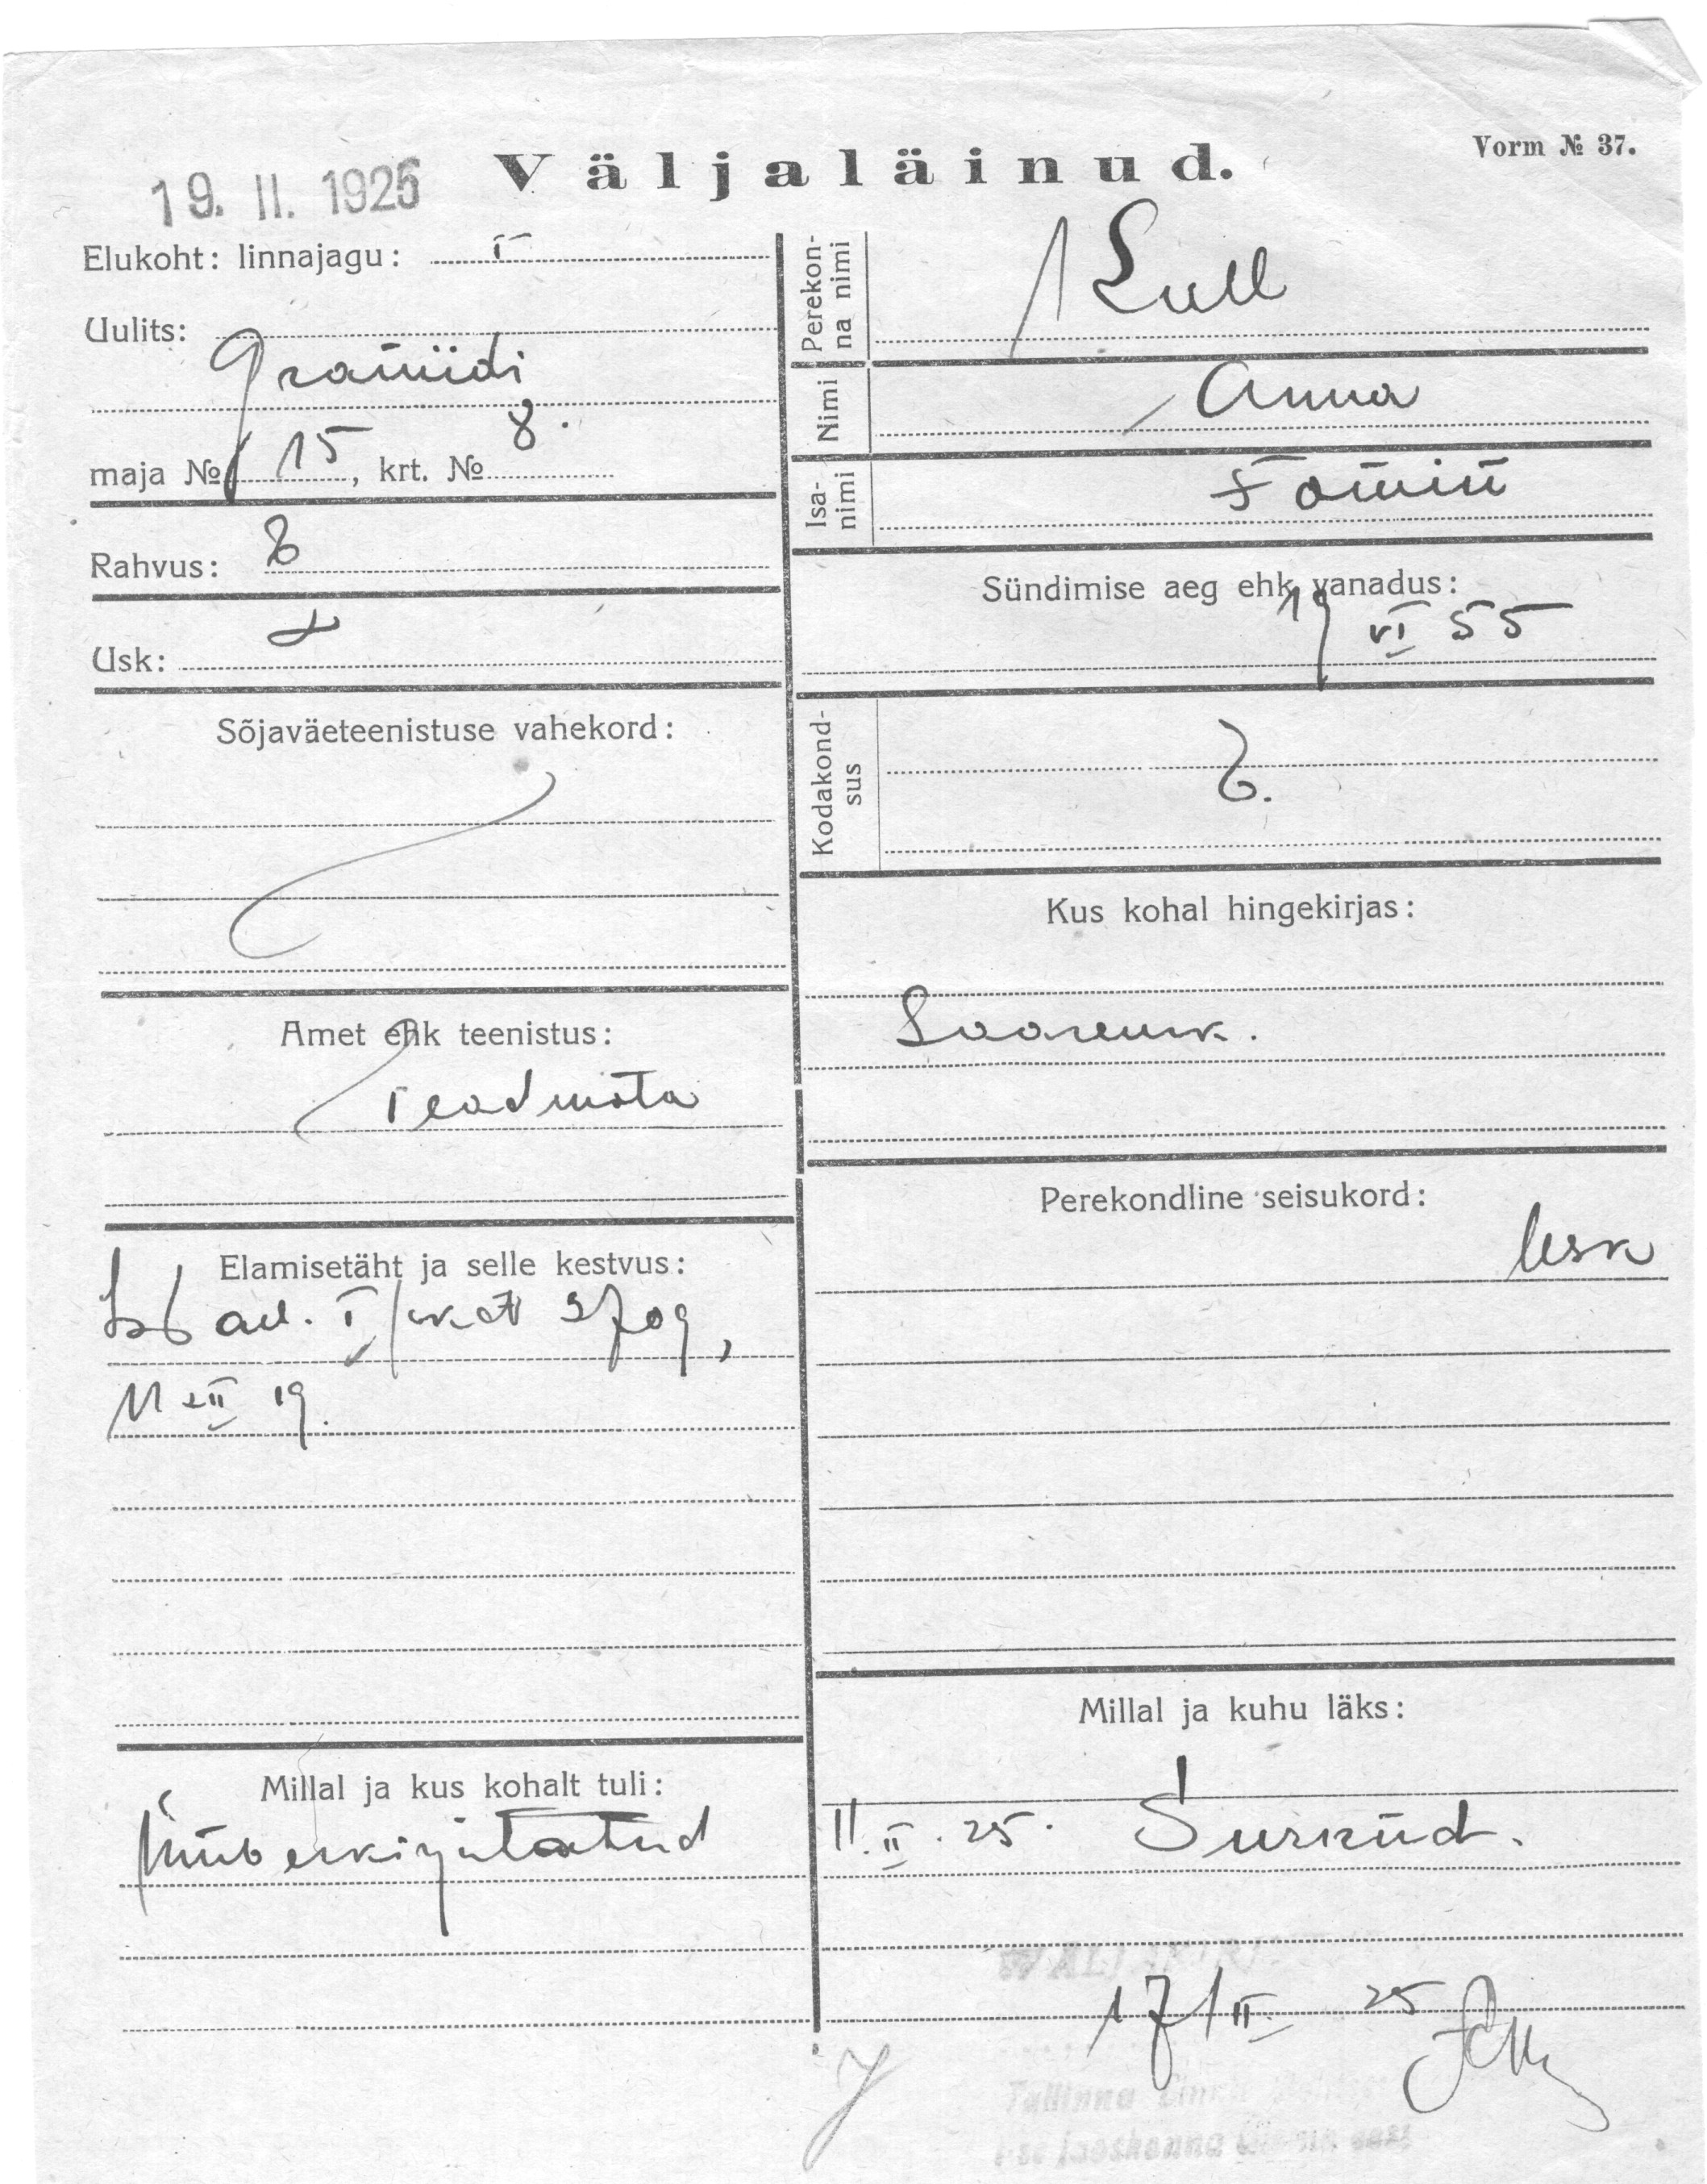 Vorm № 37.
Väljaläinud.
19. II. 1925
Elukoht: linnajagu: I
Uulits:
Graniidi
maja № 15, krt. № 8.
Rahvus:
Usk:
Sõjaväeteenistuse vahekord:
Amet ehk teenistus:
Teadmata
Elamisetäht ja selle kestvus:
3709,
19.
Millal ja kus kohalt tuli:
Ümberkirjutatud
Perekonna nimi
Lull
Nimi
Anna
Isanimi
Tomin
Sündimise aeg ehk vanadus:
19 VI 55
Kodakondsus
Kus kohal hingekirjas:
Saaremk.
Perekondline seisukord:
lesk
Millal ja kuhu läks:
11. II. 25. Surnud.
17/II 25
Tallinna